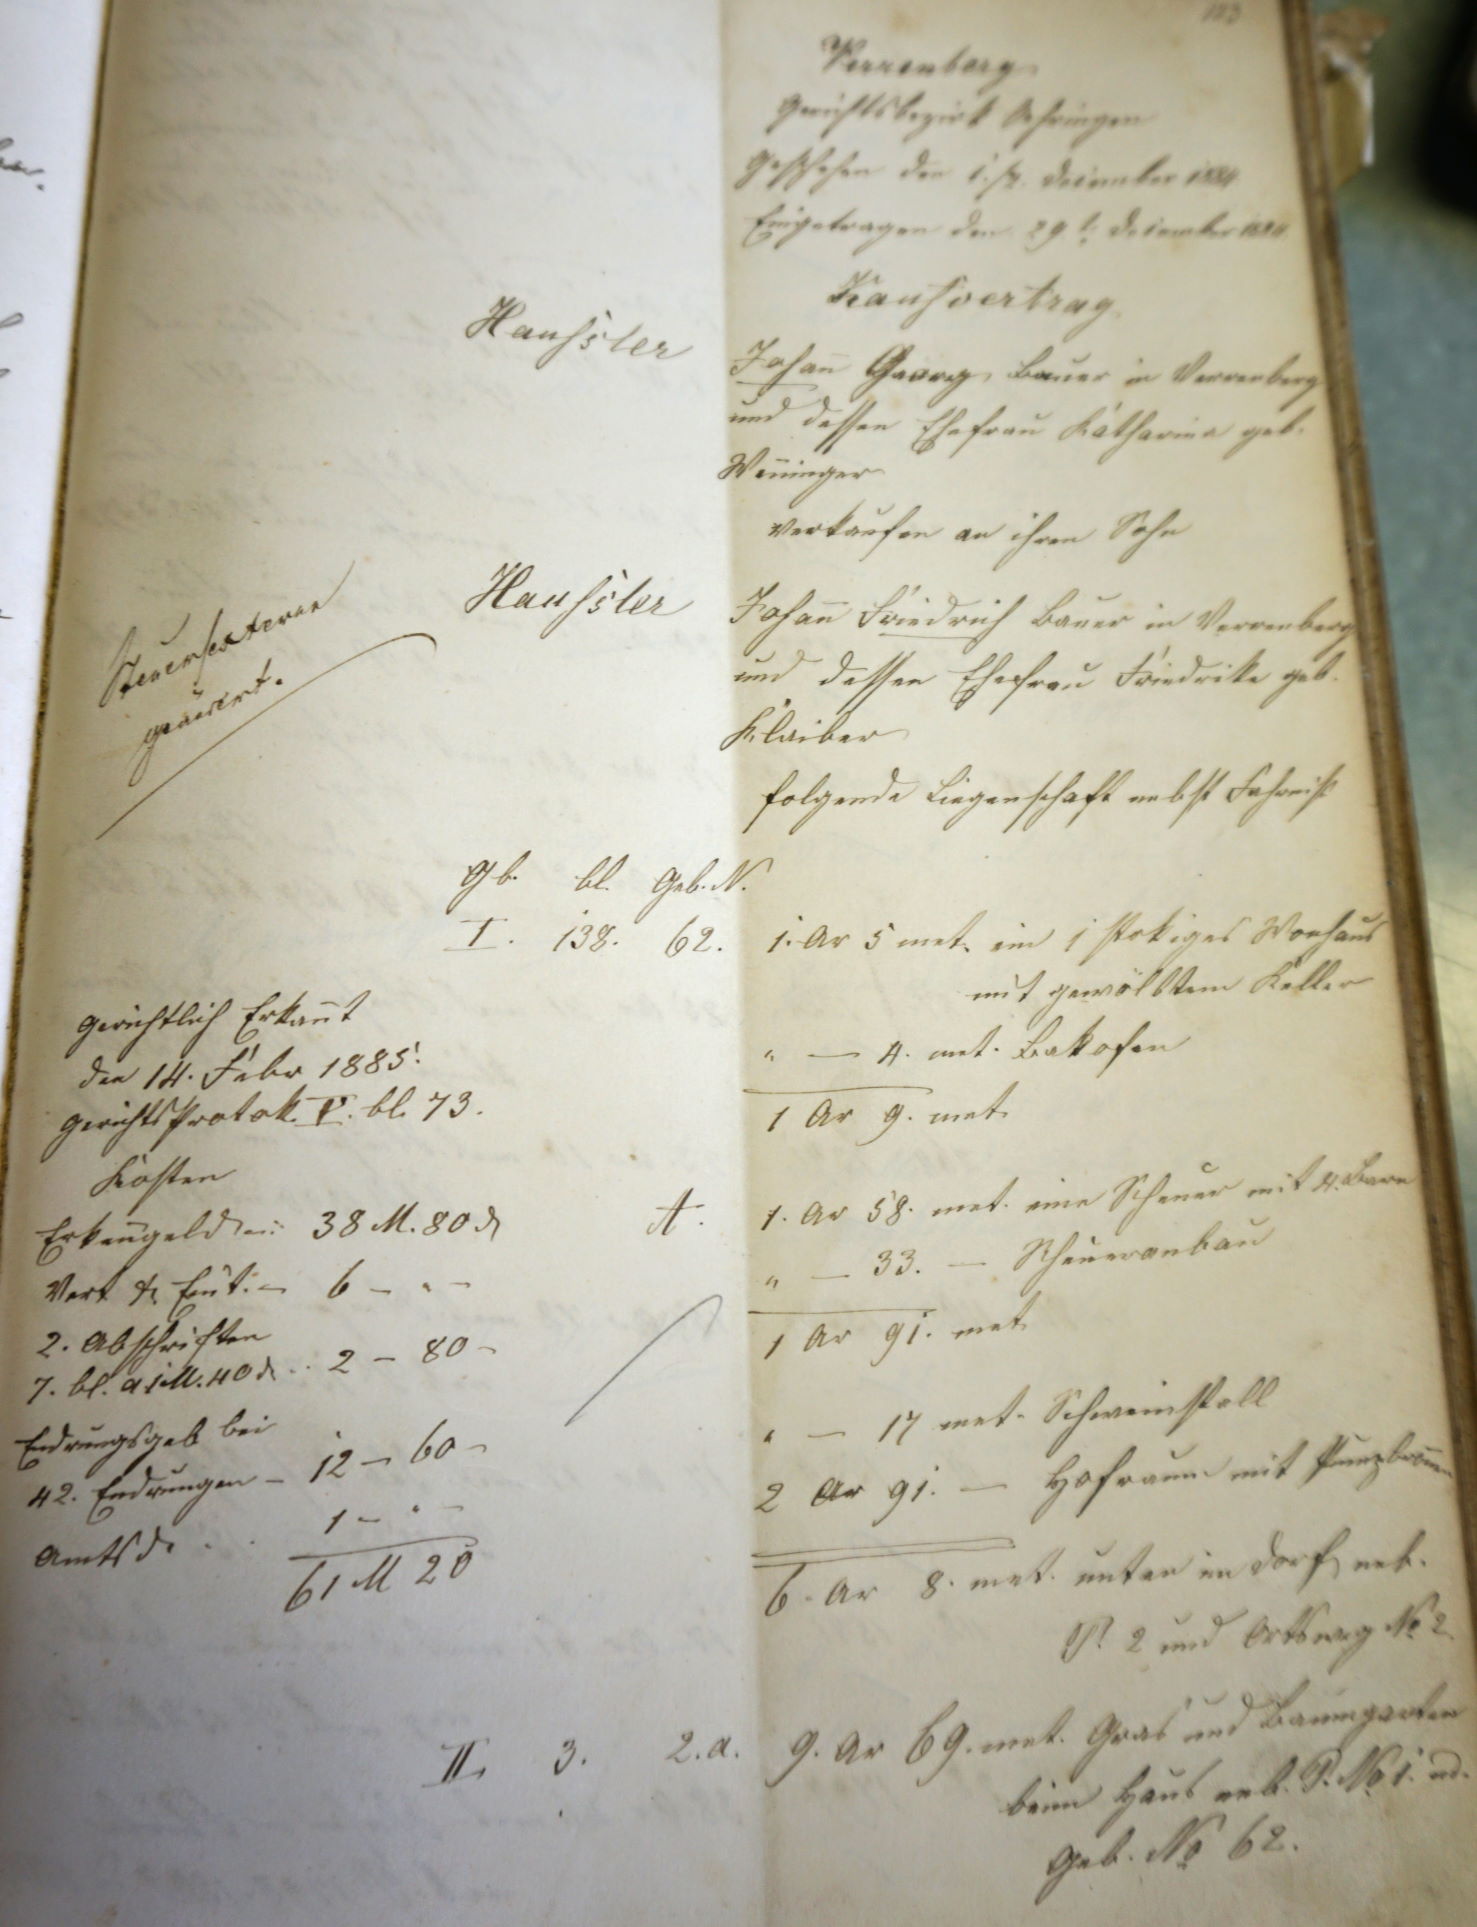 Verrenberg
Gerichtsbezirk Oehringen
Geschehen den 1. Dezember 1884
Eingetragen den 29t. Dezember 1884
Kaufvertrag.
Haussler
Johañ Georg Bauer in Verrenberg
und dessen Ehefrau Katharina geb.
Weninger
verkaufen an ihren Sohn
Haussler
Johañ Friedrich Bauer in Verrenberg
und dessen Ehefrau Friedrike geb.
Klaiber
folgende Liegenschaft nebst Fahrniß
geändert.
Gb. bl. Geb. N.
I. 138. 62. 1. Ar 5 met. ein 1 stokiges Wonhaus
mit gewölbtem Keller
" — 4. met. Bakofen
1 Ar 9. met.
A. 1. Ar 58. met. eine Scheuer mit 4. Barn
" — 33. — Scheueranbau
1 Ar 91. met.
" — 17 met. Schweinstall
2 Ar 91. — Hofraum mit Pumpbroñen
6. Ar 8. met. unten im Dorf neb.
P. 2 und Ortsweg No 2.
II. 3. 2.a. 9. Ar 69. met. Gras und Baumgarten
beim Haus neb. P. No 1. ud.
Geb. No 62.
Gerichtlich Erkañt
den 14. Febr 1885.
Gerichts Protok. V. bl. 73.
Kosten
Erkeñgeld 38 M. 80 d
Vert & 6 — " —
2. Abschriften
7. bl. a 1 M. 40 d. .. 2 — 80 —
Endrungsgeb bei
42. Endrungen — 12 — 60 —
Amtsd. . . 1 — " —
61 M 20